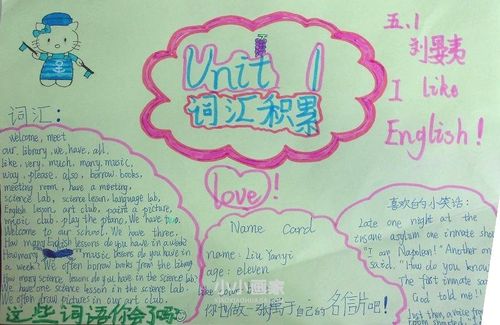 Unit 1
词汇积累
五.1
刘晏夷
I like
English!
词汇:
welcome, meet
our, library, we, have, all,
like, very, much, many, music,
way, please, also, borrow, books,
meeting room, have a meeting,
science lab, science lesson, language lab,
English lesson, art club, paint a picture,
music club, play the piano, We have two.
Welcome to our school. We have three.
How many English lessons do you have in a week
How many music lessons do you have in
a week? We often borrow books from the
How many science lessons do you have in the science lab?
We have science lessons in the science lab.
We often draw pictures in our art club.
这些词语你会了吗?
love!
Name Card
name: Liu Yanyi
age: eleven
like
你也做一张属于自己的名信片吧!
喜欢的小笑话:
Late one night at the
insane asylum one inmate
"I am Napoleon!" Another
said. "How do you know
The first inmate
God told me!
Just then, a voice from
小小画家
XIAOXIAOHUAJIA.COM